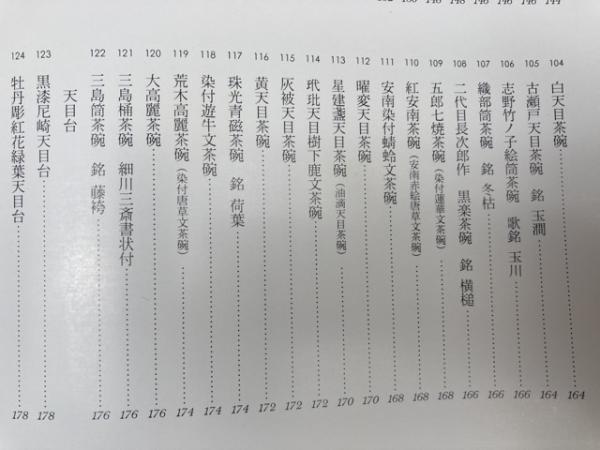 104 白天目茶碗 164
105 古瀬戸天目茶碗 銘 玉澗 164
106 志野竹ノ子絵筒茶碗 歌銘 玉川 166
107 織部筒茶碗 銘 冬枯 166
108 二代目長次郎作 黒楽茶碗 銘 横槌 166
109 五郎七焼茶碗（染付蓮華文茶碗） 168
110 紅安南茶碗（安南赤絵唐草文茶碗） 168
111 安南染付蜻蛉文茶碗 168
112 曜変天目茶碗 170
113 星建盞天目茶碗（油滴天目茶碗） 170
114 玳玻天目樹下鹿文茶碗 172
115 灰被天目茶碗 172
116 黄天目茶碗 172
117 珠光青磁茶碗 銘 荷葉 174
118 染付遊牛文茶碗 174
119 荒木高麗茶碗（染付唐草文茶碗） 174
120 大高麗茶碗 176
121 三島桶茶碗 細川三斎書状付 176
122 三島筒茶碗 銘 藤袴 176
天目台
123 黒漆尼崎天目台 178
124 牡丹彫紅花緑葉天目台 178